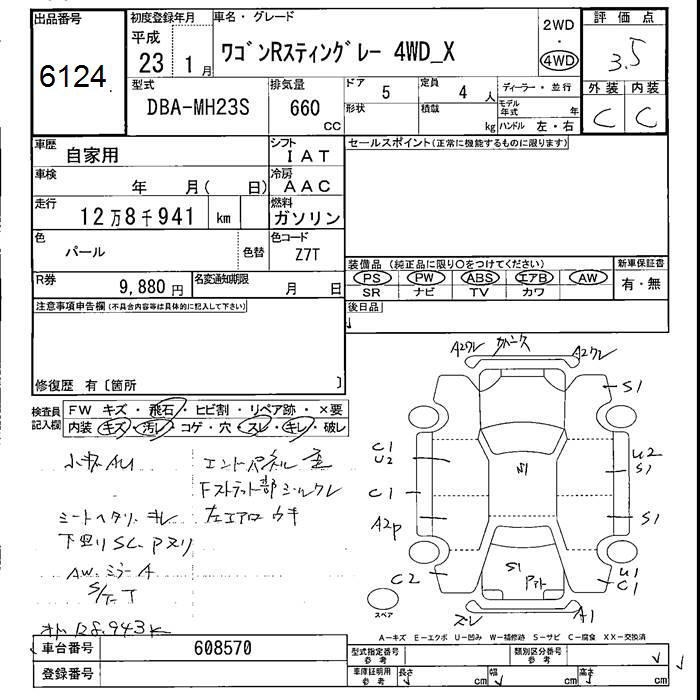 出品番号
6124
初度登録年月
平成
23 1 月
車名・グレード
ワゴンRスティングレー 4WD_X
2WD
・
4WD
評価点
3.5
外装 内装
C C
型式
DBA-MH23S
排気量
660
CC
ドア 5
定員 4 人
形状
積載 kg
ディーラー・並行
モデル年式 年
ハンドル 左・右
車歴
自家用
シフト
IAT
車検
年 月( 日)
冷房
AAC
走行
12万8千941 km
燃料
ガソリン
色
パール
色替
色コード
Z7T
R券
9,880 円
名変通知期限
月 日
セールスポイント(正常に機能するものに限ります)
装備品 (純正品に限り○をつけてください)
PS PW ABS エアB AW
SR ナビ TV カワ
新車保証書
有・無
後日品
注意事項申告欄(不具合内容等は具体的に記入して下さい)
修復歴 有〔箇所 〕
検査員記入欄
FW キズ・飛石・ヒビ割・リペア跡・×要
内装 キズ・汚レ・コゲ・穴・スレ・キレ・破レ
小キズAU
エンドパネル
Fストラット部シールワレ
シートヘタリ・キレ
左エアロ ウキ
下廻りSC、Pヌリ
AW・ミラーA
オドメ128,943K
A2ワレ
A2ワレ
S1
C1
U2
S1
U2
S1
C1
A2P
S1
C2
S1
U1
C1
ズレ
A1
スペア
A-キズ E-エクボ U-凹み W-補修跡 S-サビ C-腐食 XX-交換済
車台番号
608570
登録番号
型式指定番号
参考
類別区分番号
参考
車庫証明用
参考
長さ cm
幅 cm
高さ cm